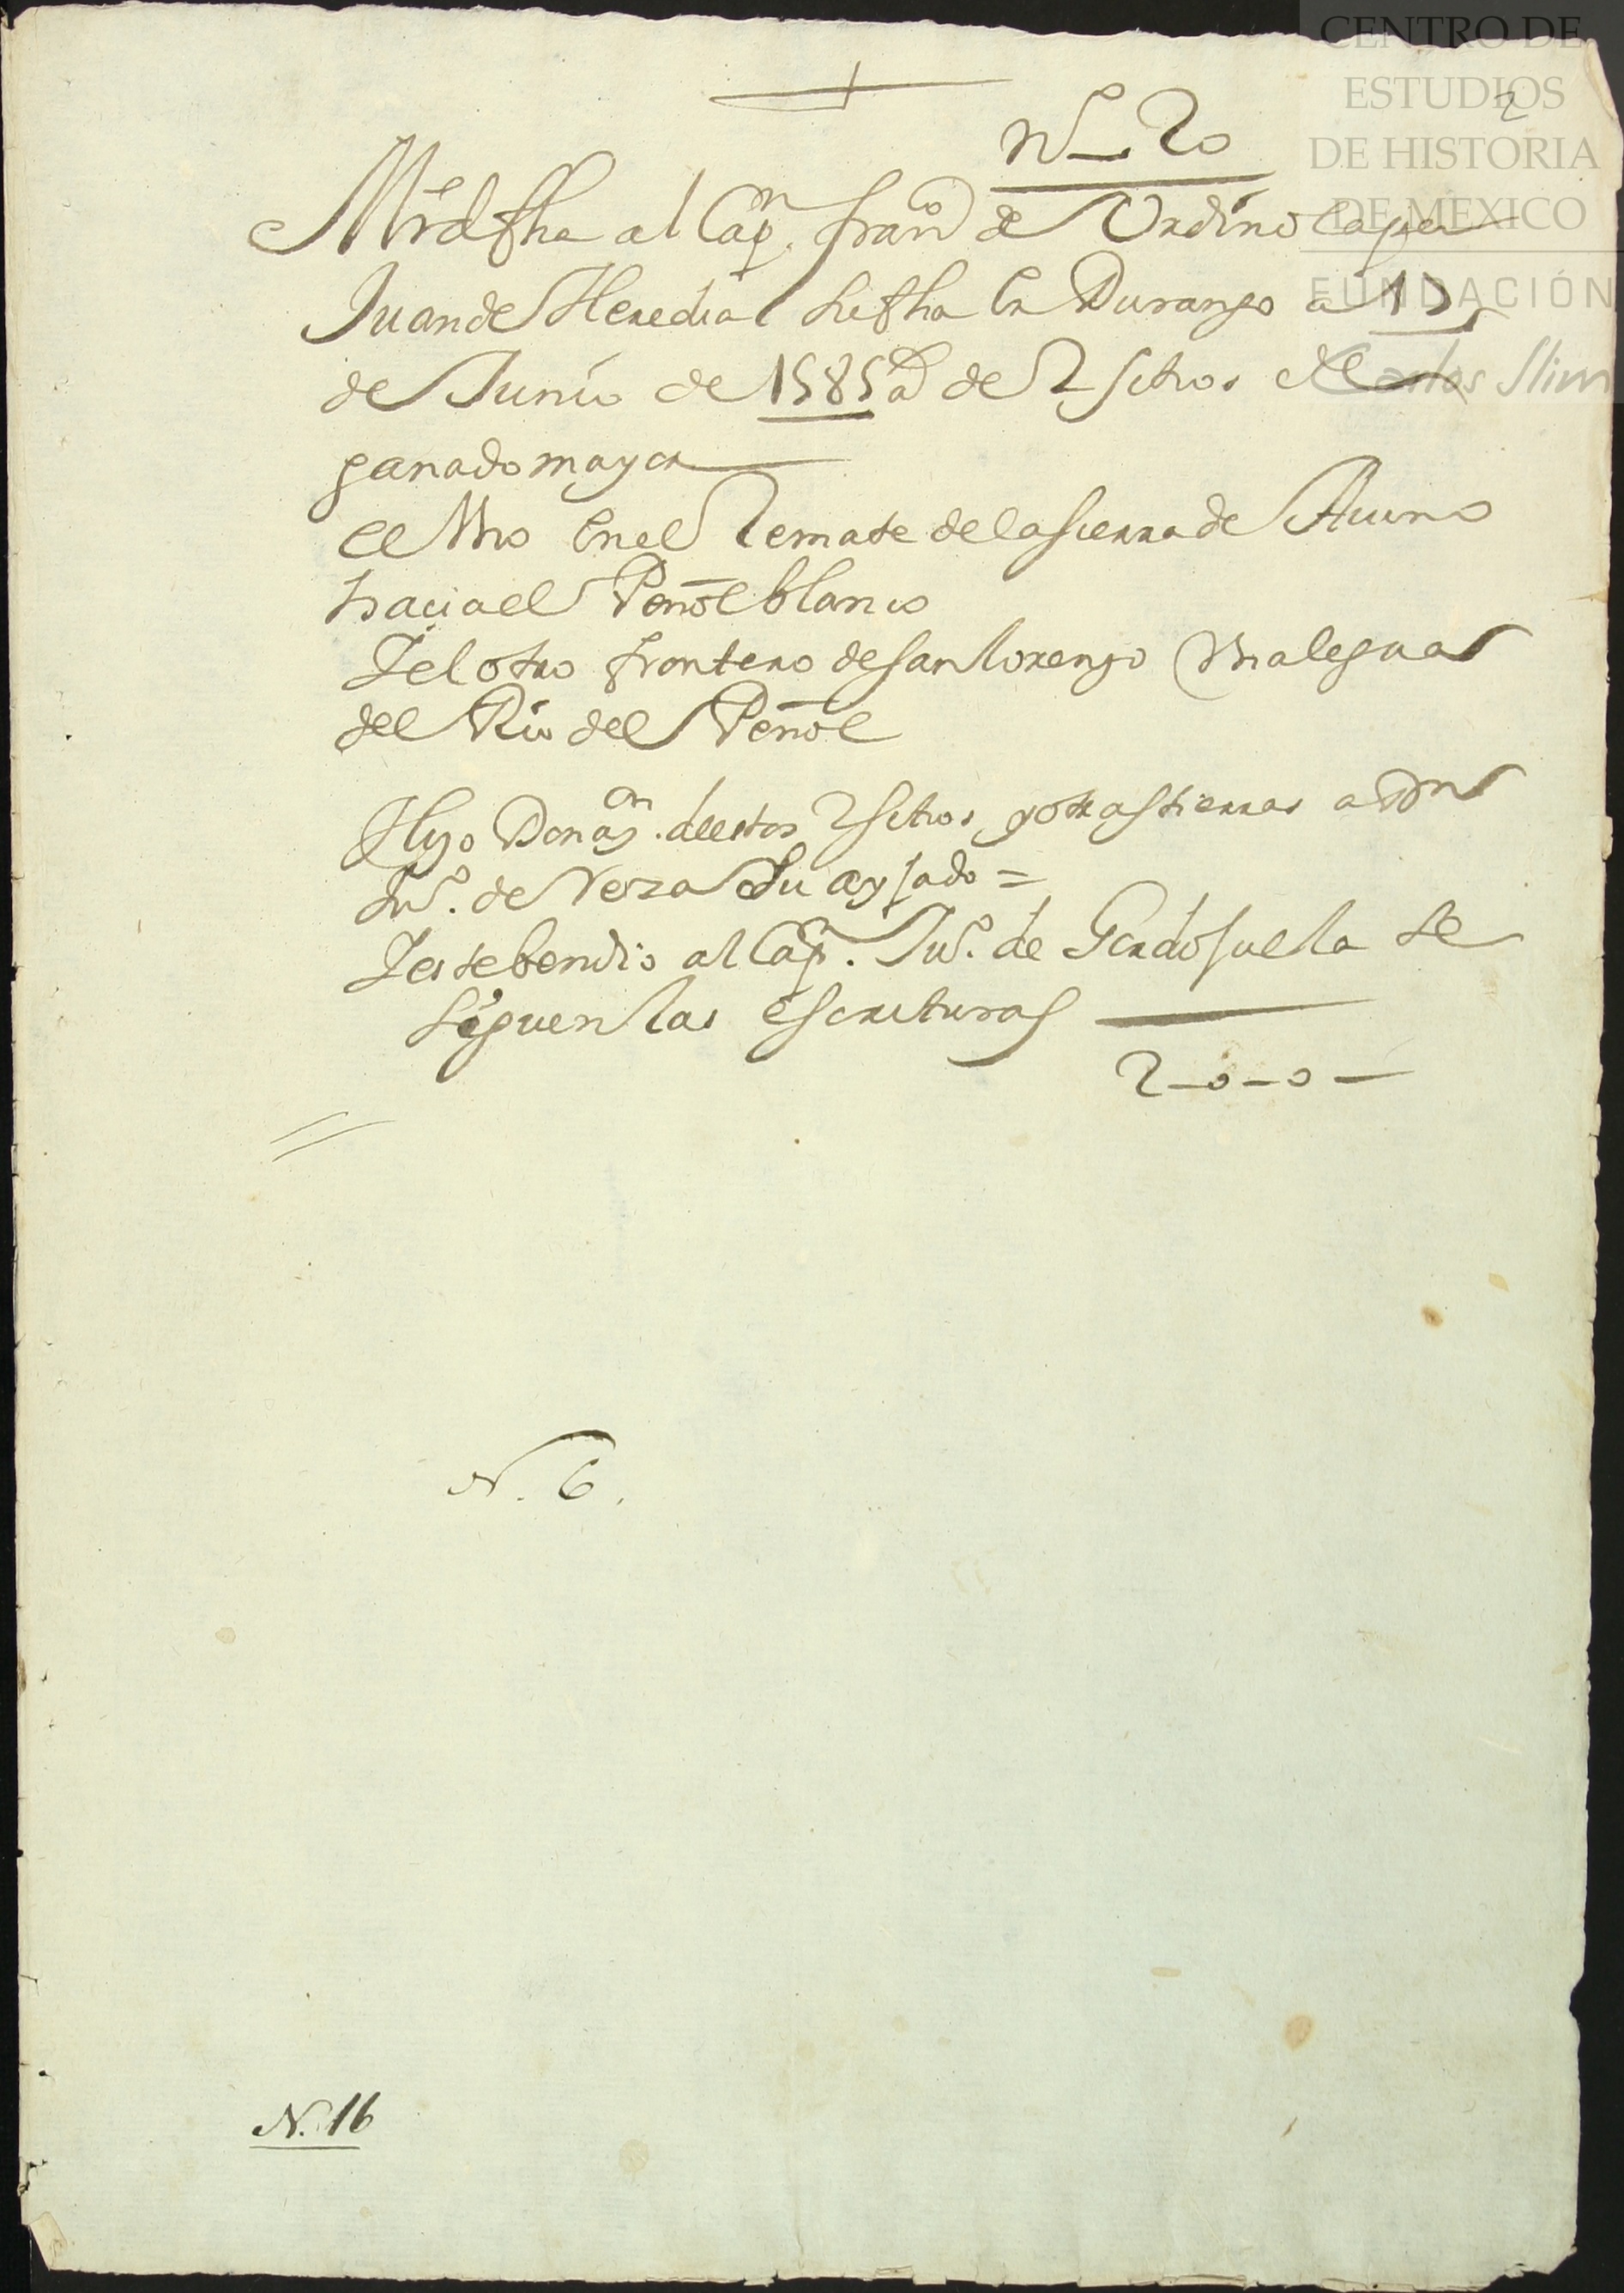 CENTRO DE
ESTUDIOS
DE HISTORIA
DE MEXICO
FUNDACIÓN
Carlos Slim
2
Nº 20
Mrd fha al Capn. franco de Urdinola por
Juan de Heredia fha En Durango a
de Junio de 1585 as de 2 sitios de
ganado mayor
el Vno En el Remate de la sierra de Auino
hacia el Peñol blanco
Y el otro frontero de san lorenzo Vna legua
del Rio del Peñol
Hizo Donaon. de estos 2 sitios y otras tierras a Dn
Juº. de Neza su ayjado =
Y este bendio al Capn. Juº. de Gordosuela se
siguen las escrituras
2-o-o-
N. 6.
N. 16